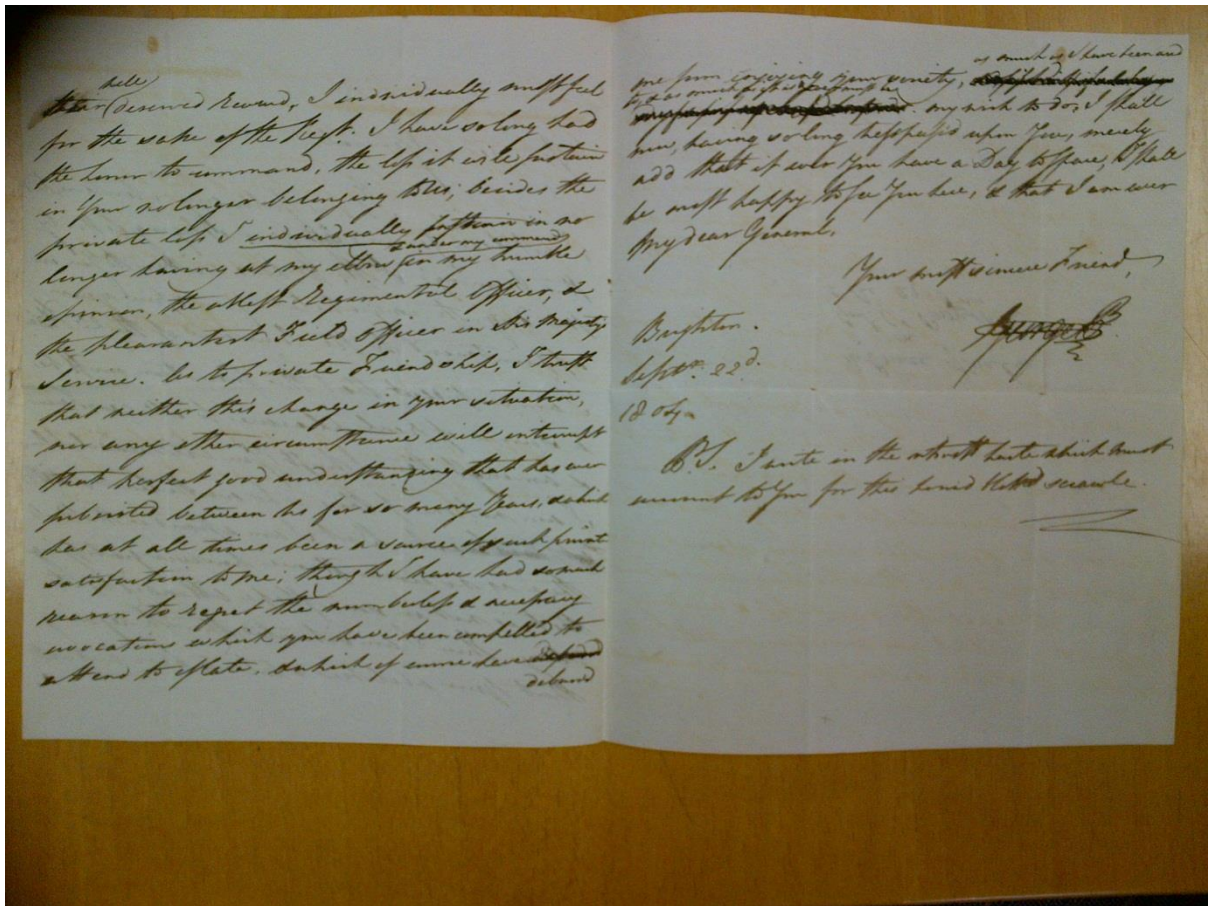 well
deserved reward, I individually must feel
for the sake of the Regt. I have so long had
the honor to command, the loss it will sustain
in Your no longer belonging to us; besides the
private loss I individually sustain in no
& under my command
longer having at my elbow in my humble
opinion, the ablest Regimental Officer, &
the pleasantest Field Officer in His Majesty's
Service. As to private Friendship, I trust
that neither this change in your situation,
nor any other circumstance will interrupt
that perfect good understanding that has ever
subsisted between us for so many Years, & which
has at all times been a source of such
satisfaction to me; though I have had so much
reason to regret the numberless & necessary
avocations which you have been compelled to
attend to of late, & which of course have
debarred
as much as I have been and
me from enjoying your society,
as it is & ever must be
my wish to do. I shall
now, having so long trespass'd upon You, merely
add that if ever You have a Day to spare, I shall
be most happy to see You here, & that I am ever
My dear General,
Your most sincere Friend,
George P.
Brighton.
Septr. 22d.
1804.
P.S. I write in the utmost haste which must
account to You for this horrid scrawl.